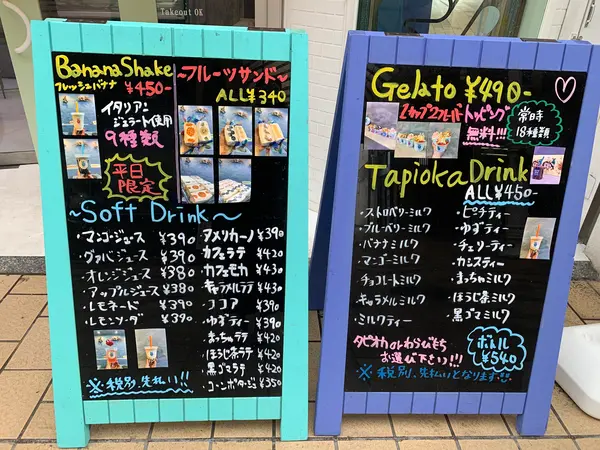 Takeout OK
BananaShake
フレッシュバナナ ¥450-
イタリアン
ジェラート使用
9種類
平日
限定
~フルーツサンド~
ALL ¥340
~Soft Drink~
・マンゴージュース ¥390
・グァバジュース ¥390
・オレンジジュース ¥380
・アップルジュース ¥380
・レモネード ¥390
・レモンソーダ ¥390
・アメリカーノ ¥390
・カフェラテ ¥420
・カフェモカ ¥430
・キャラメルラテ ¥430
・ココア ¥390
・ゆずティー ¥390
・まっちゃラテ ¥420
・ほうじ茶ラテ ¥420
・黒ゴマラテ ¥420
・コーンポタージュ ¥350
※税別、先払い!!
Gelato ¥490-
1カップ2フレーバートッピング
無料!!!
常時
18種類
Tapioka Drink
ALL ¥450-
・ストロベリーミルク
・ブルーベリーミルク
・バナナミルク
・マンゴーミルク
・チョコレートミルク
・キャラメルミルク
・ミルクティー
・ピーチティー
・ゆずティー
・チェリーティー
・カシスティー
・まっちゃミルク
・ほうじ茶ミルク
・黒ゴマミルク
タピオカ or わらびもち
お選び下さい!!!
ボトル
¥540
※税別、先払いとなります!!